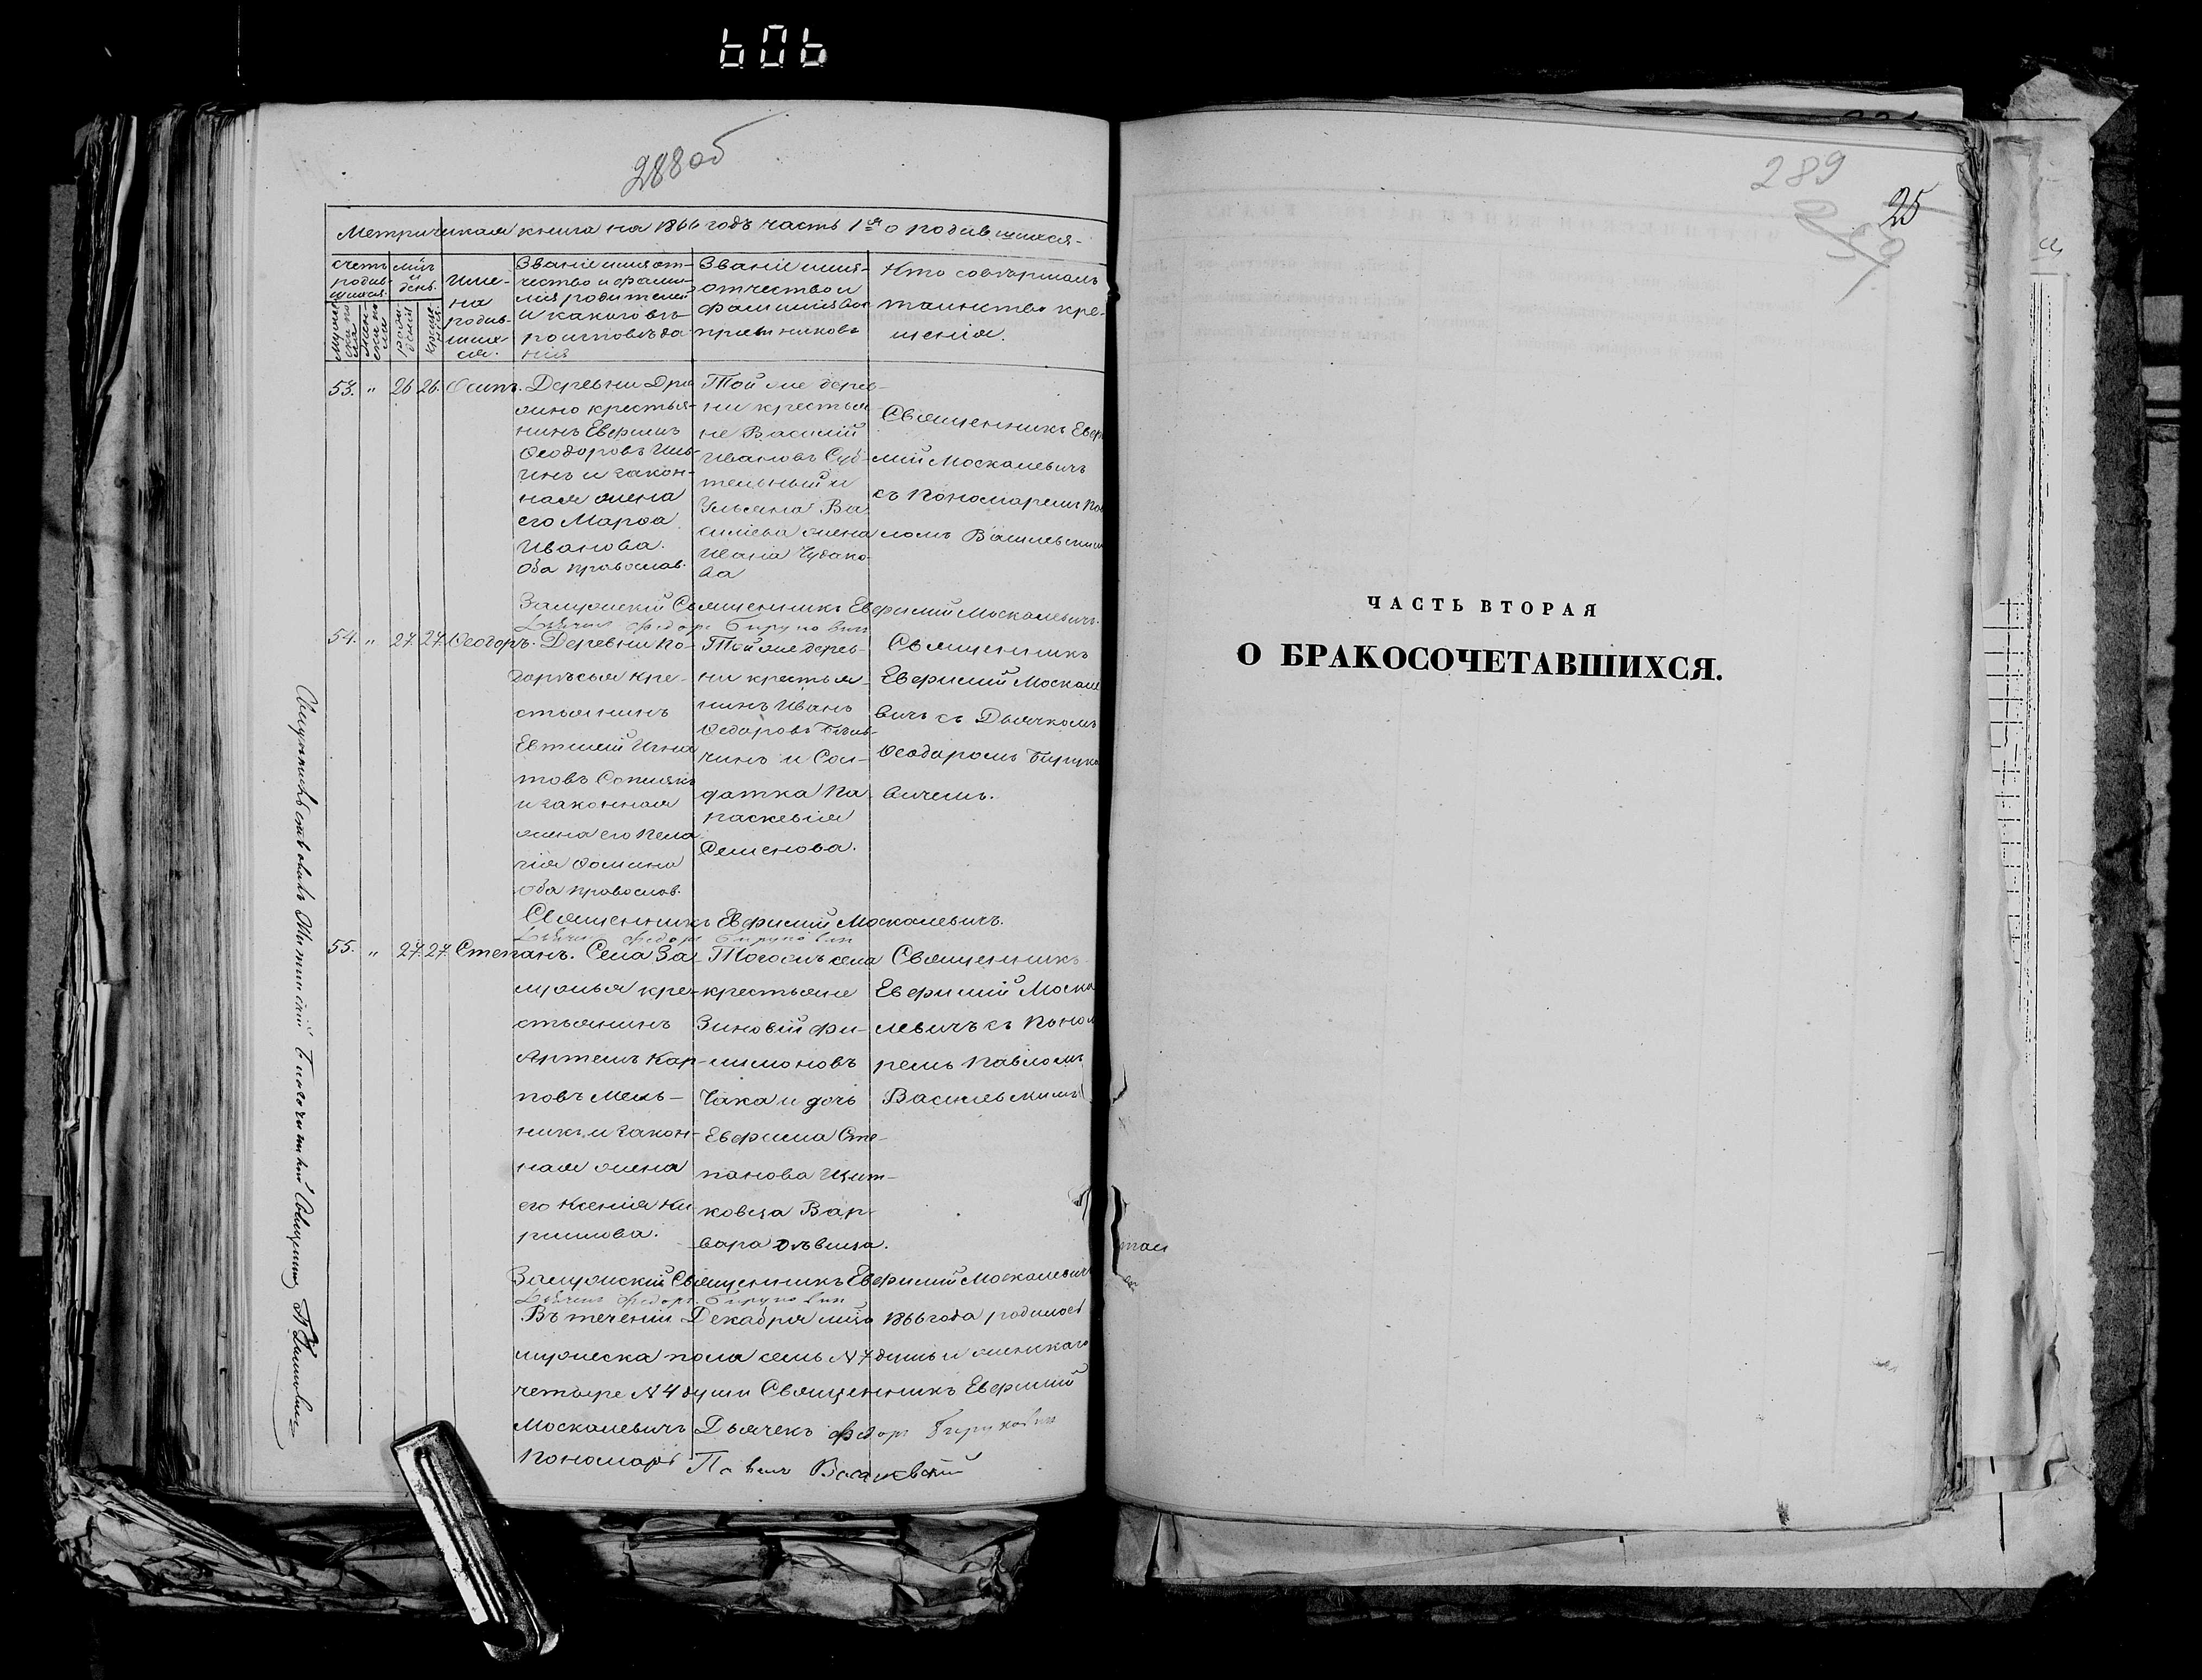 606
288 об
Метрическая книга на 1866 годъ часть 1я о родившихся
счетъ родившихся
мужска пола
женска пола
мцъ и день
рожденія
крещенія
Имена родившихся.
Званіе имя отчество и фамилія родителей и какого вѣроисповѣданія
Званіе имя отчество и фамилія воспріемниковъ
Кто совершалъ таинство крещенія.
53. " 26 26 Осипъ.
Деревни
крестья-
нинъ Евфимъ
Ѳеодоровъ
и закон-
ная жена
его Марѳа
Иванова.
Оба православ.
Той же дерев-
ни крестья
не Василій
Ивановъ
и
Ульяна Ва
силіева жена
Ивана Чудако-
ва
Священникъ Евфи
мій Москалевичъ
съ Пономаремъ Пав
ломъ Василевским
Замужскій Священникъ Евфимій Москалевичъ.
Дьячекъ Федоръ Бирукович
54. " 27. 27. Ѳеодоръ.
Деревни По-
горѣлья кре-
стьянинъ
Евтихій Игна
товъ
и законная
жена его Пела
гія Ѳомина
оба православ.
Той же дерев-
ни крестья-
нинъ Иванъ
Ѳедоровъ
и Сол-
датка Па
раскевія
Семенова.
Священникъ
Евфимій Москале
вичъ съ Дьячкомъ
Ѳеодоромъ Бируко
вичемъ.
Священникъ Евфимій Москалевичъ.
Дьячекъ Федоръ Бируковичъ
55. " 27. 27 Степанъ.
Села За-
мужья кре-
стьянинъ
Артемъ Кар-
повъ Мель-
никъ и закон-
ная жена
его Ксенія Ки
рилова.
Тогожъ села
крестьяне
Зиновій Фи-
лимоновъ
Чака и дочь
Ефрима Сте-
панова
Вар-
вара дѣвица.
Священникъ
Евфимій Моска
левичъ съ Понома
ремъ Павломъ
Василевскимъ
Замужскій Священникъ Евфимій Москалевичъ
Дьячекъ Федоръ Бируковичъ
Въ теченіи Декабря мца 1866 года родилось
мужеска пола семь №7 душъ и женскаго
четыре №4 души Священникъ Евфимій
Москалевичъ Дьячекъ Федоръ Бируковичъ
Пономарь Павелъ Василевскій
289
25
ЧАСТЬ ВТОРАЯ
О БРАКОСОЧЕТАВШИХСЯ.